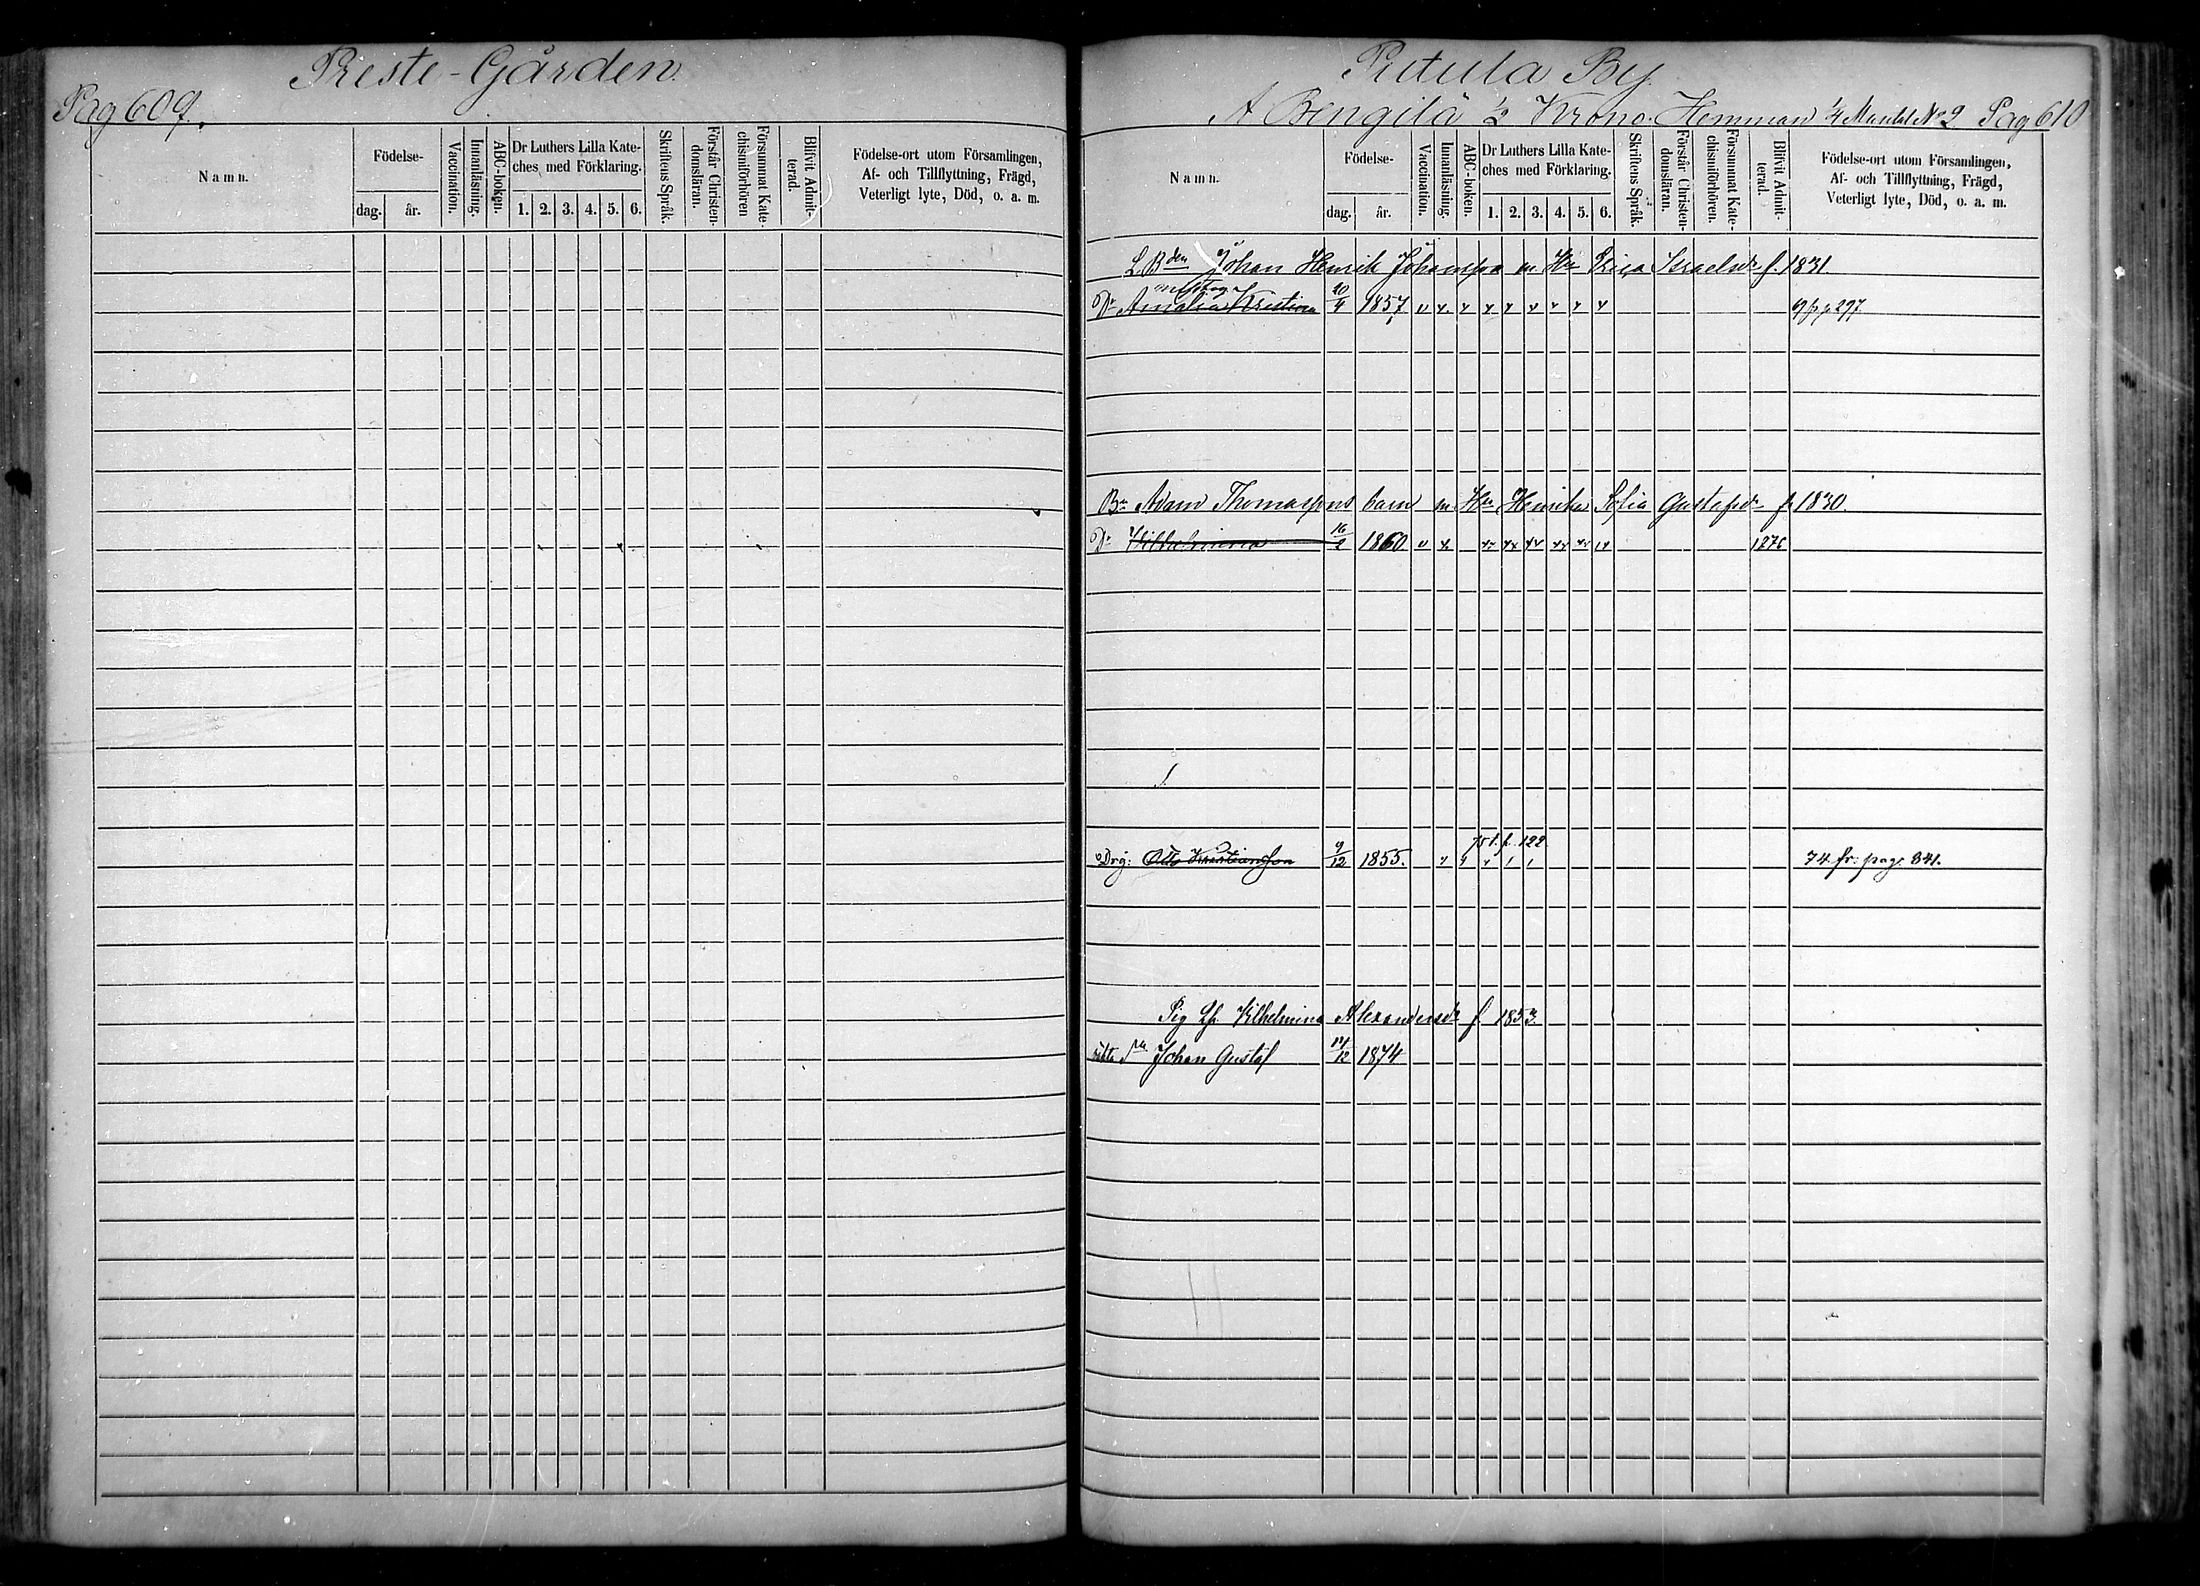 Preste-Gården.
Pag 609.
Namn.
Födelse-
dag.
år.
Vaccination.
Innanläsning.
ABC-boken.
Dr Luthers Lilla Kate-
ches med Förklaring.
1. 2. 3. 4. 5. 6.
Skriftens Språk.
Förstår Christen-
domsläran.
Försummat Kate-
chismiförhören
Blifvit Admit-
terad.
Födelse-ort utom Församlingen,
Af- och Tillflyttning, Frägd,
Veterligt lyte, Död, o. a. m.
Putula By
A Bengilä ½ Krono-Hemman ¼ Mantal No 2. Pag 610
Namn.
Födelse-
dag.
år.
Vaccination.
Innanläsning.
ABC-boken.
Dr Luthers Lilla Kate-
ches med Förklaring.
1. 2. 3. 4. 5. 6.
Skriftens Språk.
Förstår Christen-
domsläran.
Försummat Kate-
chismiförhören.
Blifvit Admit-
terad.
Födelse-ort utom Församlingen,
Af- och Tillflyttning, Frägd,
Veterligt lyte, Död, o. a. m.
L. Bden Johan Henrik Johansson m. Hu Israelsdr f. 1831
Dr Amalia Kristina 1857 p. 297.
Bn Adam Thomassons barn m Hu Henrika Sofia Gustafsdr f. 1830.
Dr Vilhelmina 16/2 1860 1876
75 t. p. 122
Drg: Otto Kristiansson 9/12 1855. 74 fr: pag. 341.
Pig Lh Vilhelmina Alexandersdr f. 1853.
oäkta Sn Johan Gustaf 1874